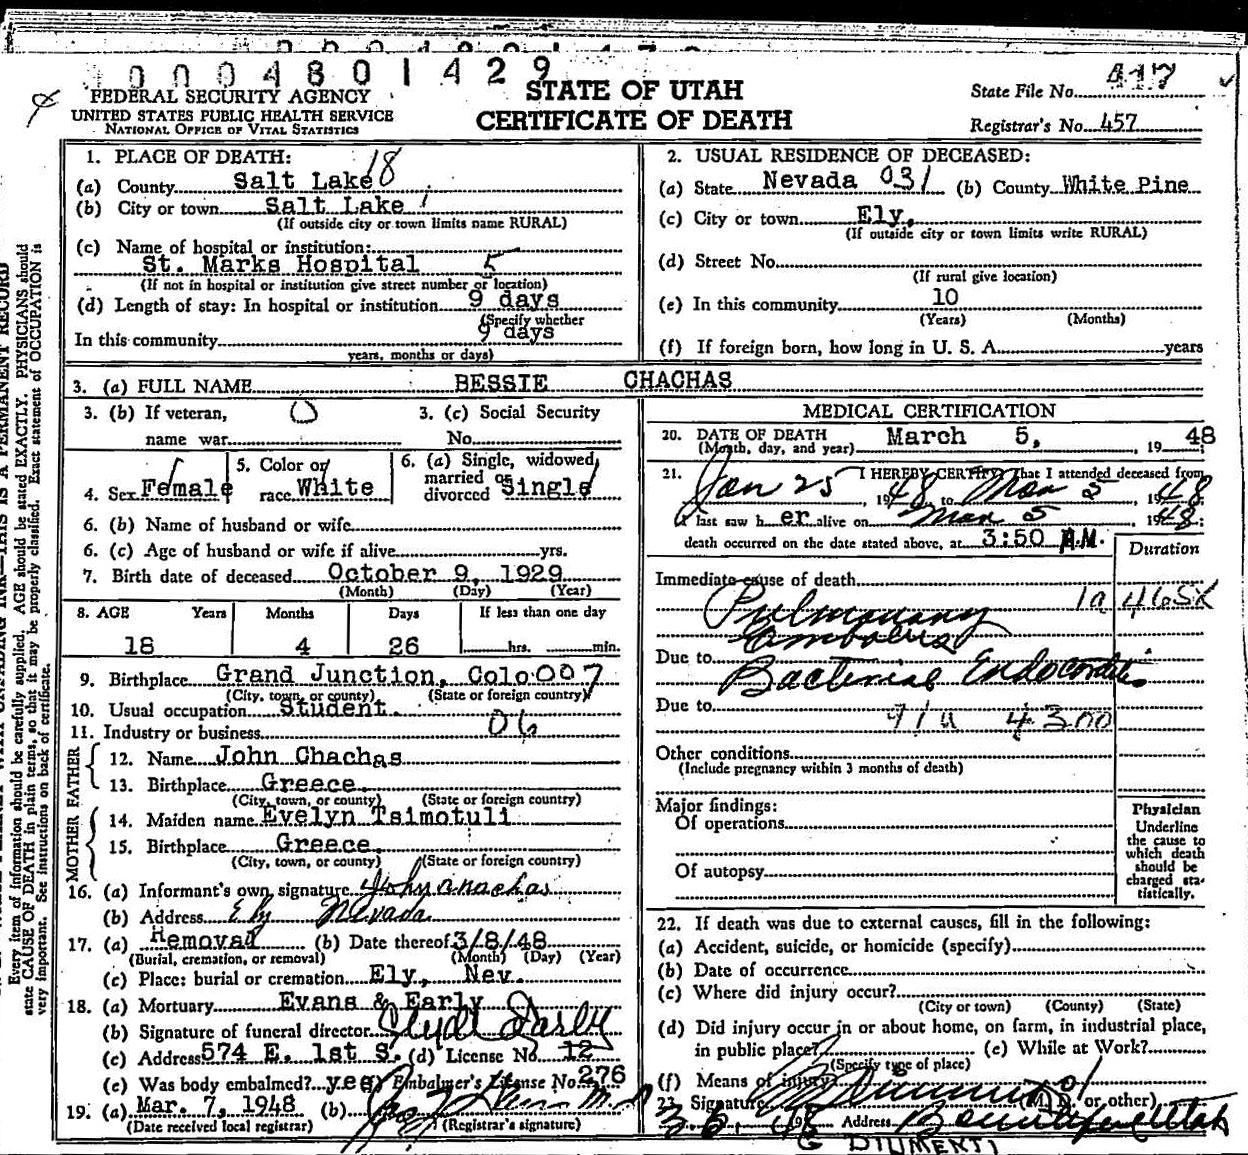 0004801429
FEDERAL SECURITY AGENCY
UNITED STATES PUBLIC HEALTH SERVICE
NATIONAL OFFICE OF VITAL STATISTICS
STATE OF UTAH
CERTIFICATE OF DEATH
State File No. 417
Registrar's No. 457
1. PLACE OF DEATH: 18
(a) County Salt Lake
(b) City or town Salt Lake
(If outside city or town limits name RURAL)
(c) Name of hospital or institution:
St. Marks Hospital 5
(If not in hospital or institution give street number or location)
(d) Length of stay: In hospital or institution 9 days
(Specify whether
In this community 9 days
years, months or days)
2. USUAL RESIDENCE OF DECEASED:
(a) State Nevada 031 (b) County White Pine
(c) City or town Ely,
(If outside city or town limits write RURAL)
(d) Street No.
(If rural give location)
(e) In this community 10
(Years) (Months)
(f) If foreign born, how long in U. S. A. years
3. (a) FULL NAME BESSIE CHACHAS
3. (b) If veteran, 0
name war
3. (c) Social Security
No.
4. Sex Female
5. Color or
race White
6. (a) Single, widowed,
married or
divorced Single
6. (b) Name of husband or wife
6. (c) Age of husband or wife if alive yrs.
7. Birth date of deceased October 9, 1929
(Month) (Day) (Year)
8. AGE Years Months Days If less than one day
18 4 26 hrs. min.
9. Birthplace Grand Junction, Colo 007
(City, town, or county) (State or foreign country)
10. Usual occupation Student.
11. Industry or business 06
FATHER
12. Name John Chachas
13. Birthplace Greece
(City, town, or county) (State or foreign country)
MOTHER
14. Maiden name Evelyn Tsimotuli
15. Birthplace Greece
(City, town, or county) (State or foreign country)
16. (a) Informant's own signature John Chachas
(b) Address Ely Nevada
17. (a) Removal (b) Date thereof 3/8/48
(Burial, cremation, or removal) (Month) (Day) (Year)
(c) Place: burial or cremation Ely, Nev.
18. (a) Mortuary Evans & Early
(b) Signature of funeral director Clyde Early
(c) Address 574 E. 1st S. (d) License No 12
(e) Was body embalmed? yes Embalmer's License No. 276
19. (a) Mar. 7, 1948 (b)
(Date received local registrar) (Registrar's signature)
MEDICAL CERTIFICATION
20. DATE OF DEATH March 5, 19 48
(Month, day, and year)
21. I HEREBY CERTIFY that I attended deceased from
Jan 25, 1948 to Mar 5, 1948
I last saw her alive on Mar 5, 1948;
death occurred on the date stated above, at 3:50 A.M.
Duration
Immediate cause of death
Pulmonary 1a 465X
Embolus
Due to Bacterial Endocarditis
Due to
91a 4300
Other conditions
(Include pregnancy within 3 months of death)
Major findings:
Of operations
Of autopsy
Physician
Underline
the cause to
which death
should be
charged sta-
tistically.
22. If death was due to external causes, fill in the following:
(a) Accident, suicide, or homicide (specify)
(b) Date of occurrence
(c) Where did injury occur?
(City or town) (County) (State)
(d) Did injury occur in or about home, on farm, in industrial place,
in public place? (e) While at Work?
(Specify type of place)
(f) Means of injury
23. Signature (M. D. or other)
3.6. Address Bountiful Utah
G DIUMENTI
Every item of information should be carefully supplied. AGE should be stated EXACTLY. PHYSICIANS should
state CAUSE OF DEATH in plain terms, so that it may be properly classified. Exact statement of OCCUPATION is
very important. See instructions on back of certificate.